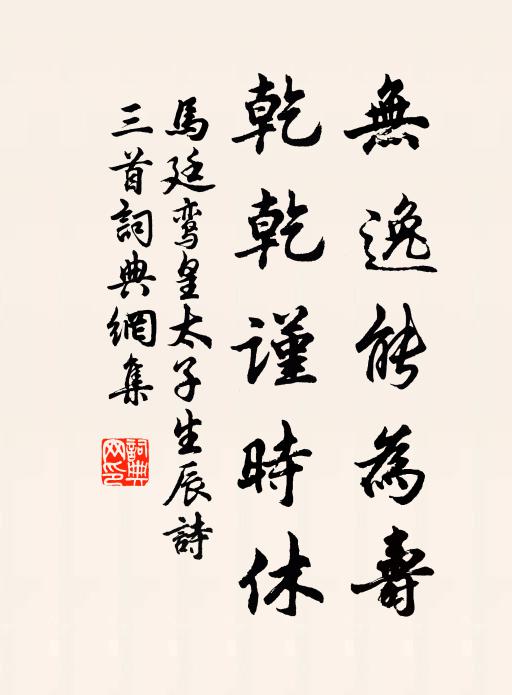 無逸能為壽
乾乾謹時休
馬廷鸞皇太子生辰詩
三首詞典網集
詞典
网印